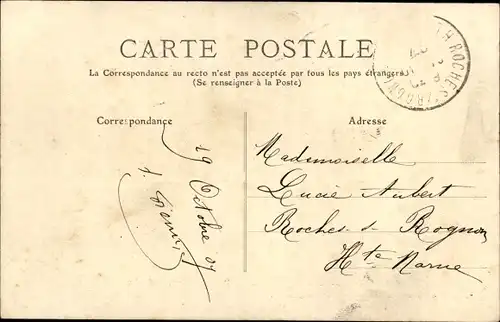 CARTE POSTALE
La Correspondance au recto n'est pas acceptée par tous les pays étrangers
(Se renseigner à la Poste)
Correspondance
Adresse
19 Octobre 07
Mademoiselle
Lucie Aubert
Roches s- Rognon
Hte Marne